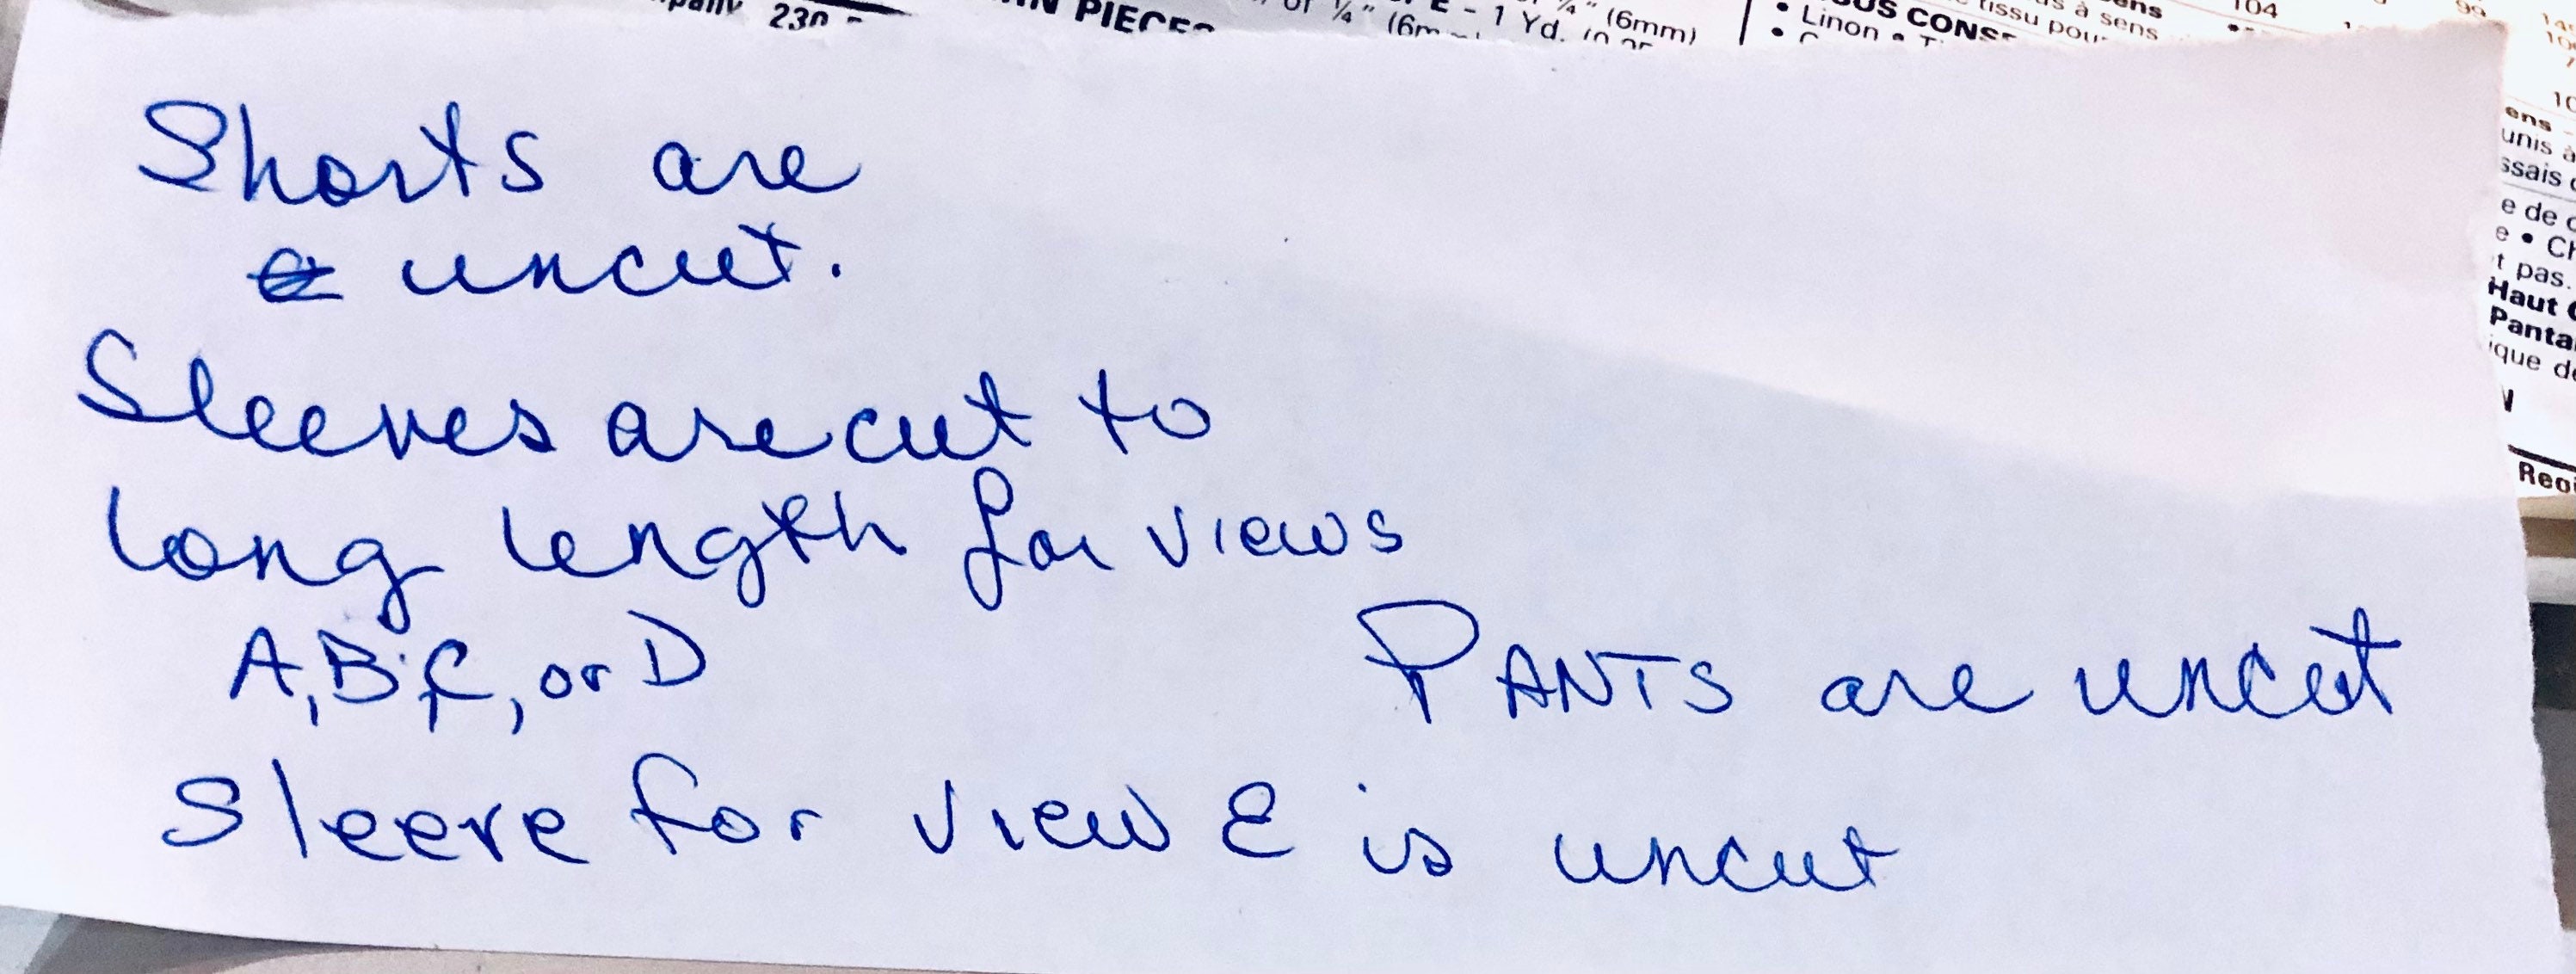 230
PIECES
of ¼" (6m
E - 1 Yd.
¼" (6mm)
• Linon •
tissu pou
à sens
104
99
10
ens
unis à
ssais
e de
e • Ch
t pas.
Haut
Panta
ique de
Shorts are
uncut.
Sleeves are cut to
long length for views
A, B, C, or D
PANTS are uncut
Sleeve for view E is uncut